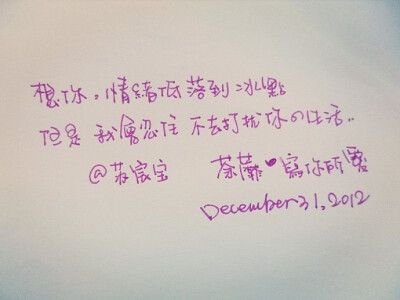 想你。情緒低落到冰點
但是 我會忍住 不去打扰你の生活..
@苏宸宝 荼蘼·寫你所爱
December 31.2012